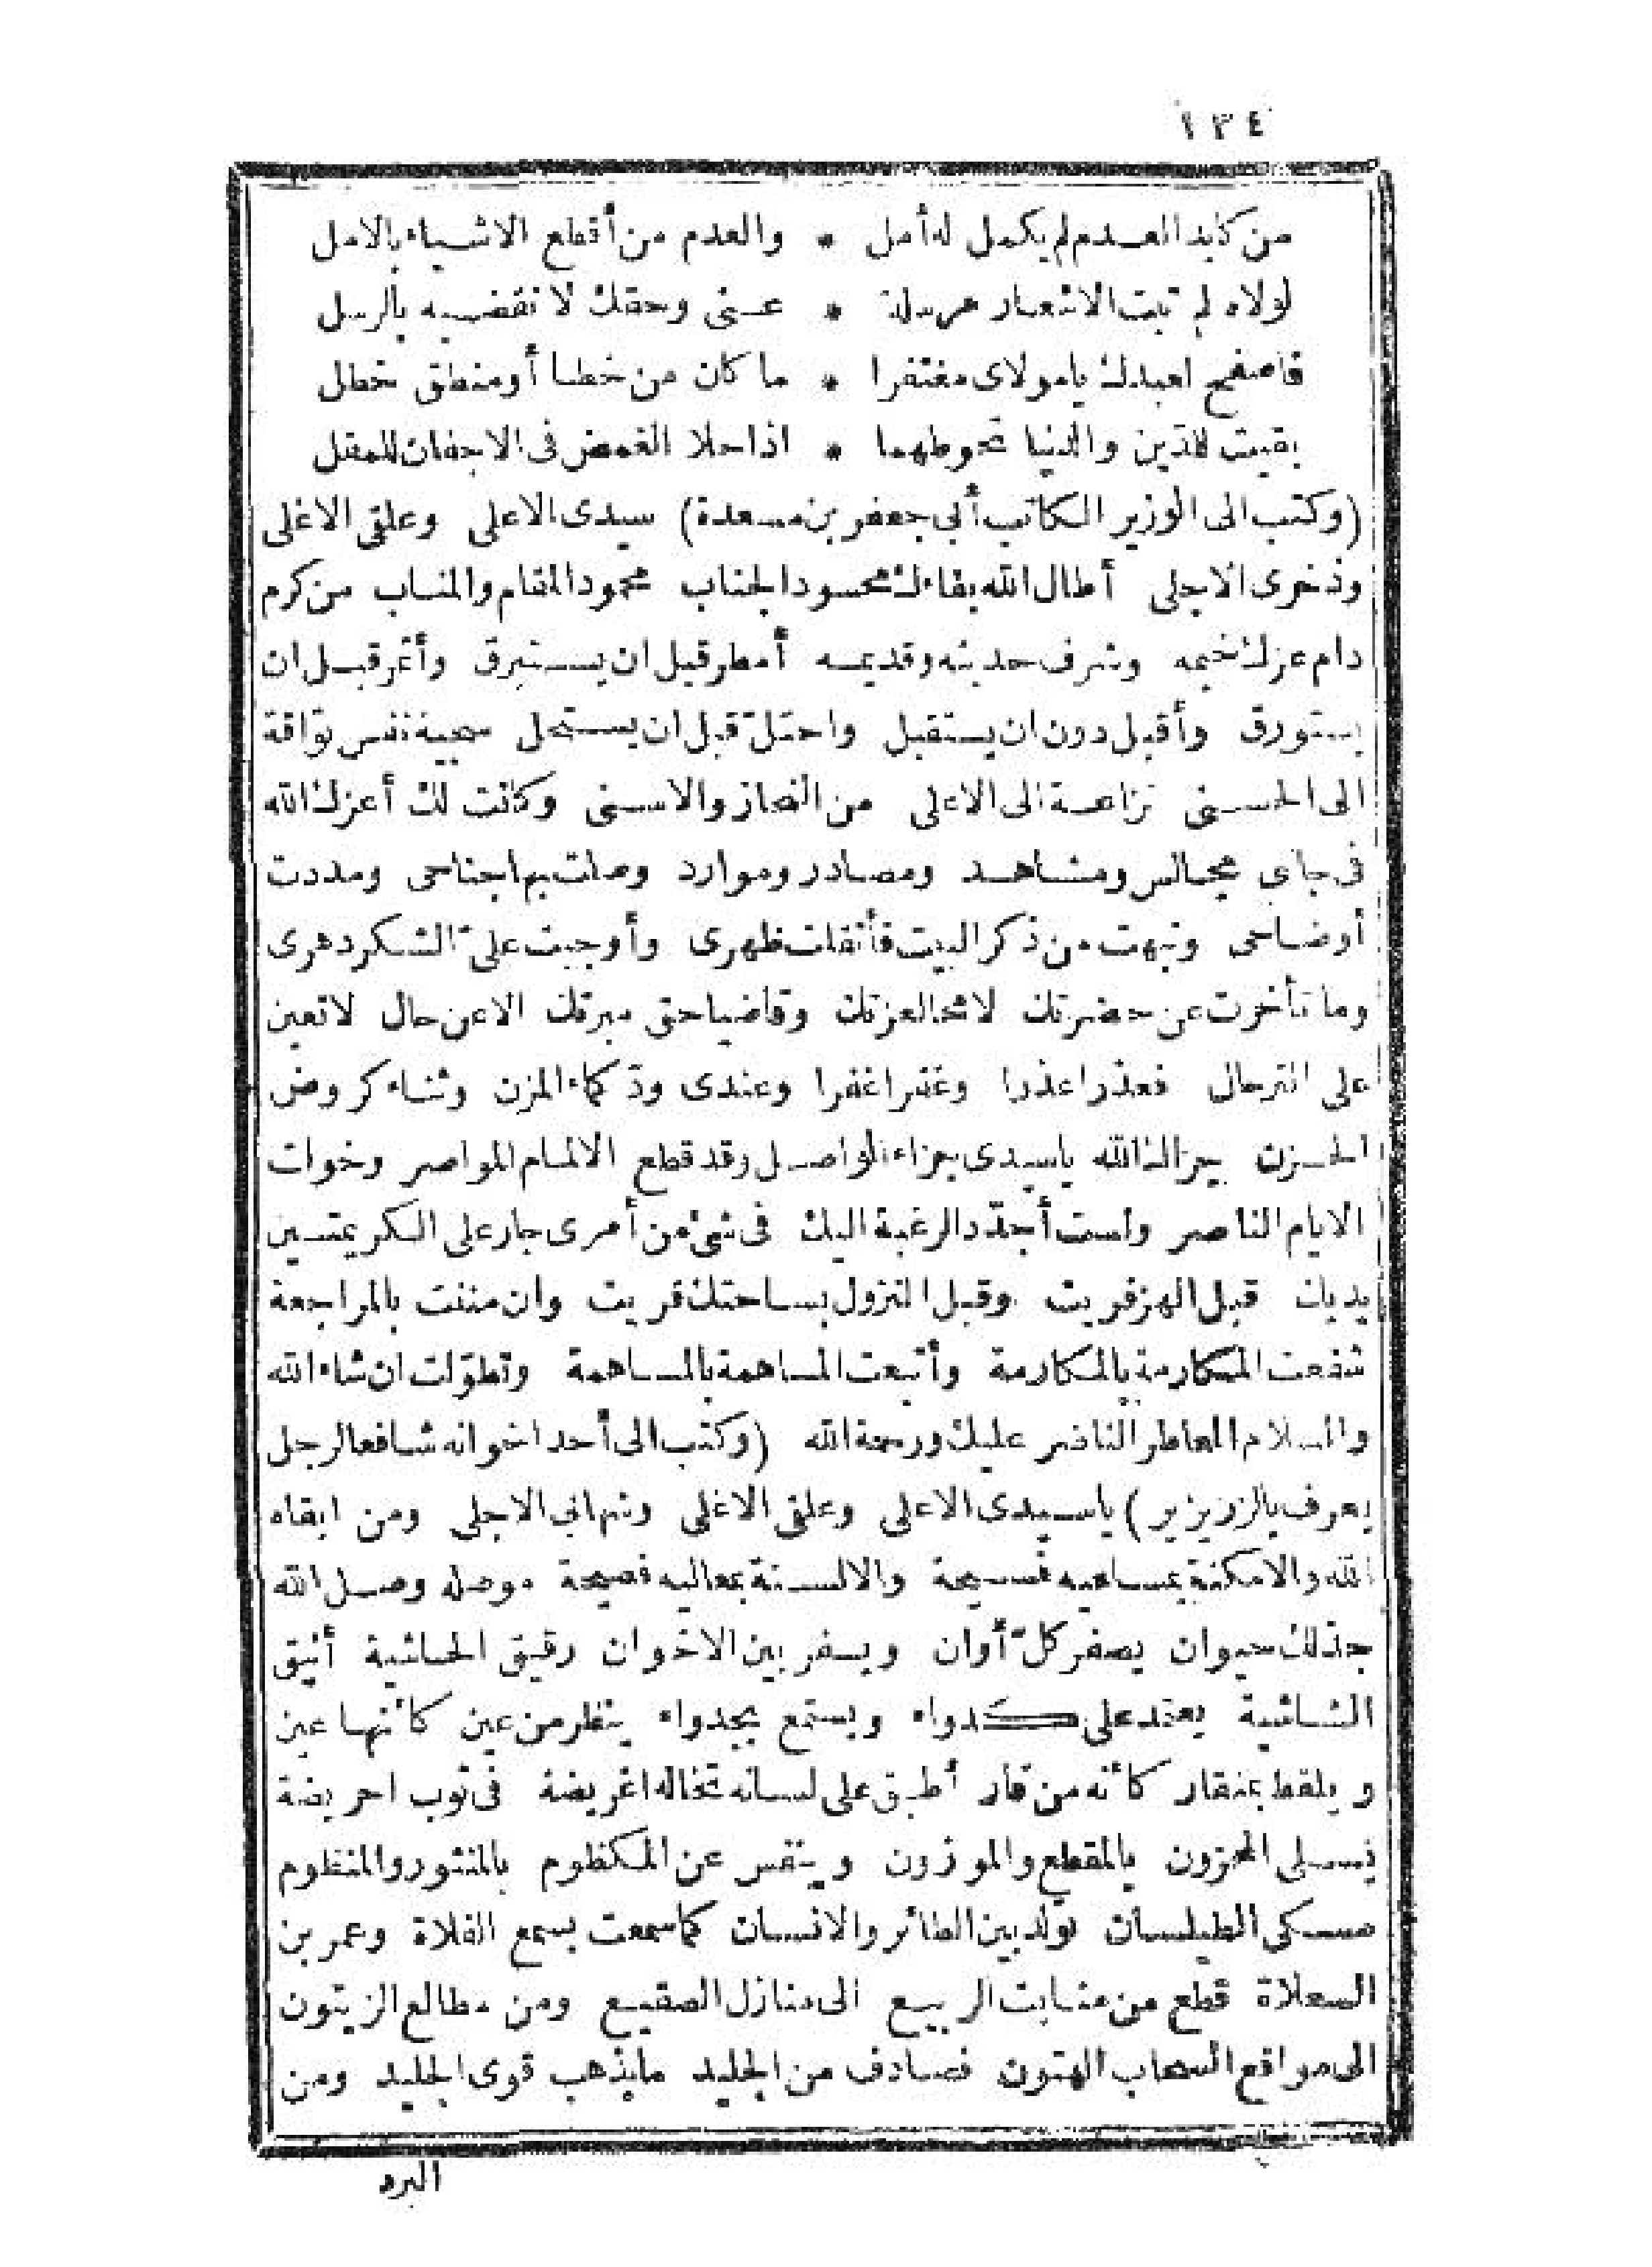 ١٣٤
من كابد العدم لم يكمل له أمل * والعدم من أقطع الاشياء بالامل
لولاه لم تبت الاشعار مرسلة * عنى وحقك لا نقضيه بالرسل
فاصفح لعبدك يا مولاى مغتفرا * ما كان من خطا أو منطق خطل
بقيت للدين والدنيا تحوطهما * اذا حلا الغمض فى الاجفان للمقل
(وكتب الى الوزير الكاتب أبى جعفر بن مسعدة) سيدى الاعلى وعلقى الاغلى
وذخرى الاجلى أطال الله بقاءك محسود الجناب محمود المقام والمناب من كرم
دام عزك خيمه وشرف حديثه وقديمه أمطر قبل ان يستبرق وأثمر قبل ان
يستورق وأقبل دون ان يستقبل واحتل قبل ان يستحل سجية نفس تواقة
الى الحسنى نزاعة الى الاعلى من الفخار والاسنى وكانت لك أعزك الله
فى جانبى مجالس ومشاهد ومصادر وموارد وصلت بها جناحى ومددت
أوضاحى ونبهت من ذكر البيت فأثقلت ظهرى وأوجبت علىّ الشكر دهرى
وما تأخرت عن حضرتك لائحا لعزتك وقاضيا حق مبرتك الا عن حال لا تعين
على الترحال فعذرا عذرا وغفرا غفرا وعندى ودّ كماء المزن وثناء كروض
الحزن جزاك الله ياسيدى جزاء الواصل وقد قطع الالمام المواصر وخوات
الايام الناصر ولست أجدّد الرغبة اليك فى شئ من أمرى جار على الكريمتين
يديك قبل الهزفريت وقبل النزول بساحتك قريت وان مننت بالمراجعة
شفعت المكارمة بالمكارمة وأتبعت المساهمة بالمساهمة وتطوّلت ان شاء الله
والسلام العاطر الناضر عليك ورحمة الله (وكتب الى أحد اخوانه شافعا لرجل
يعرف بالزريزير) ياسيدى الاعلى وعلقى الاغلى وشهابى الاجلى ومن ابقاه
الله والامكنة بمساعيه فسيحة والالسنة بمعاليه فصيحة موصله وصل الله
جذلك حيوان يصفر كلّ أوان ويسفر بين الاخوان رقيق الحاشية أنيق
الشاشية يعتمد على كدواء ويستمع بجدواء ينظر من عين كأنها عين
ويلقط بمنقار كأنه من قار أطبق على لسانه تخاله اغريضة فى ثوب احريضة
يسلى المحزون بالمقطع والموزون وينفس عن المكظوم بالمنثور والمنظوم
مسكى الطيلسان تولد بين الطائر والانسان كما سمعت بسمع الفلاة وعمر بن
السعلاة قطع من منابت الربيع الى منازل الصقيع ومن مطالع الزيتون
الى مواقع السحاب الهتون فصادف من الجليد ما يذهب قوى الجليد ومن
البرد